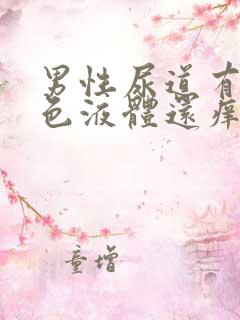 男性尿道有
色液體還癢
童增